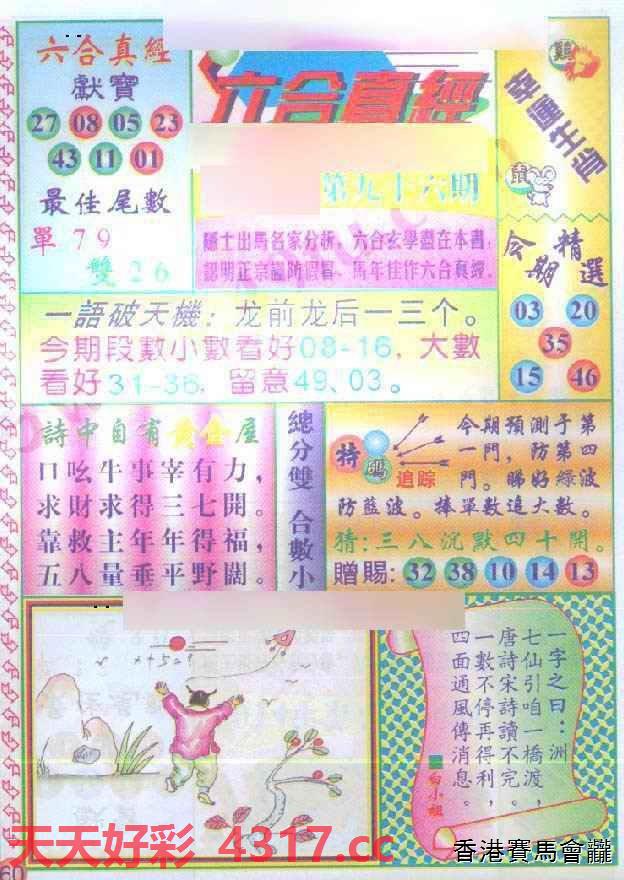 六合真經
獻寶
27 08 05 23
43 11 01
最佳尾數
單 79
雙 26
六合真經
第九十六期
隱士出馬名家分析，六合玄學盡在本書，
認明正宗謹防假冒、馬年佳作六合真經。
幸運生肖
雞
鼠
今期精選
03 20
35
15 46
一語破天機：龙前龙后一三个。
今期段數小數看好08-16，大數
看好31-36，留意49、03。
詩中自有黃金屋
口吆牛事宰有力，
求財求得三七開。
靠救主年年得福，
五八量垂平野闊。
總分雙 合數小
特碼追踪
今期預測于第
一門，防第四
門。睇好綠波
防藍波。捧單數追大數。
猜:三八沉默四十開。
贈賜: 32 38 10 14 13
一字之曰：洲
七仙引咱一橋渡，
唐詩宋詩讀不完。
一數不停再得利，
四面通風傳消息。
白小姐
天天好彩 4317.cc
香港賽馬會
60